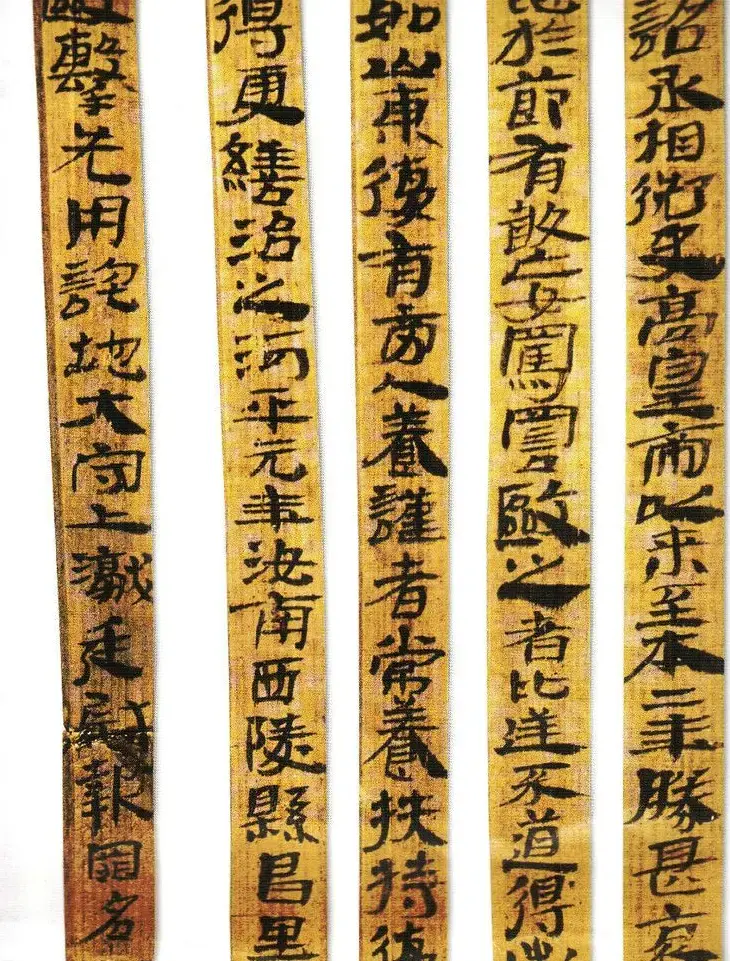 詔丞相御史高皇帝以來至本二年勝甚哀
比於節有敢妄罵詈毆之者比逆不道得出
如山東復有旁人養謹者常養扶持復
得更繕治之河平元年汝南西陵縣昌里
毆擊先用詫地大守上讞廷尉報罪名